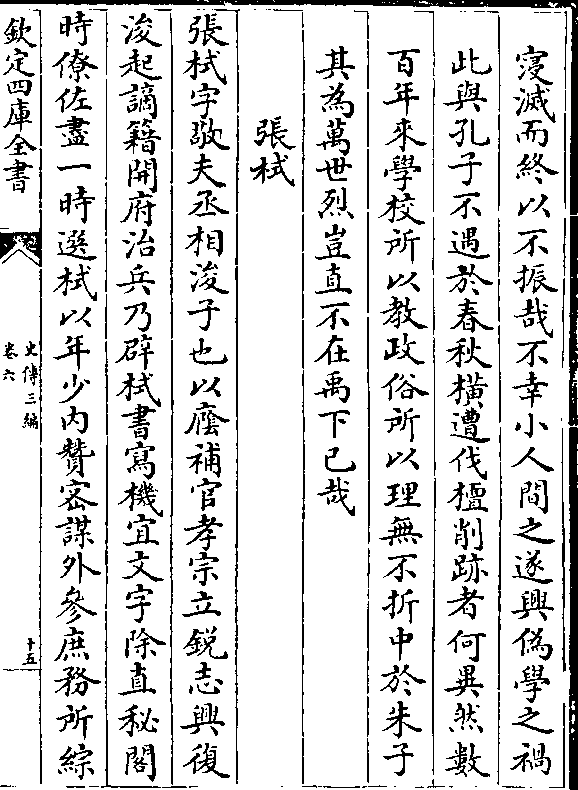 寖滅而終以不振哉不幸小人間之遂興偽學之禍
此與孔子不遇於春秋橫遭伐檀削跡者何異然數
百年來學校所以教政俗所以理無不折中於朱子
其為萬世烈豈直不在禹下已哉
張栻
張栻字敬夫丞相浚子也以廕補官孝宗立銳志興復
浚起謫籍開府治兵乃辟栻書寫機宜文字除直秘閣
時僚佐盡一時選栻以年少内贊密謀外參庶務所綜
欽定四庫全書
史傳三編
卷六
十五